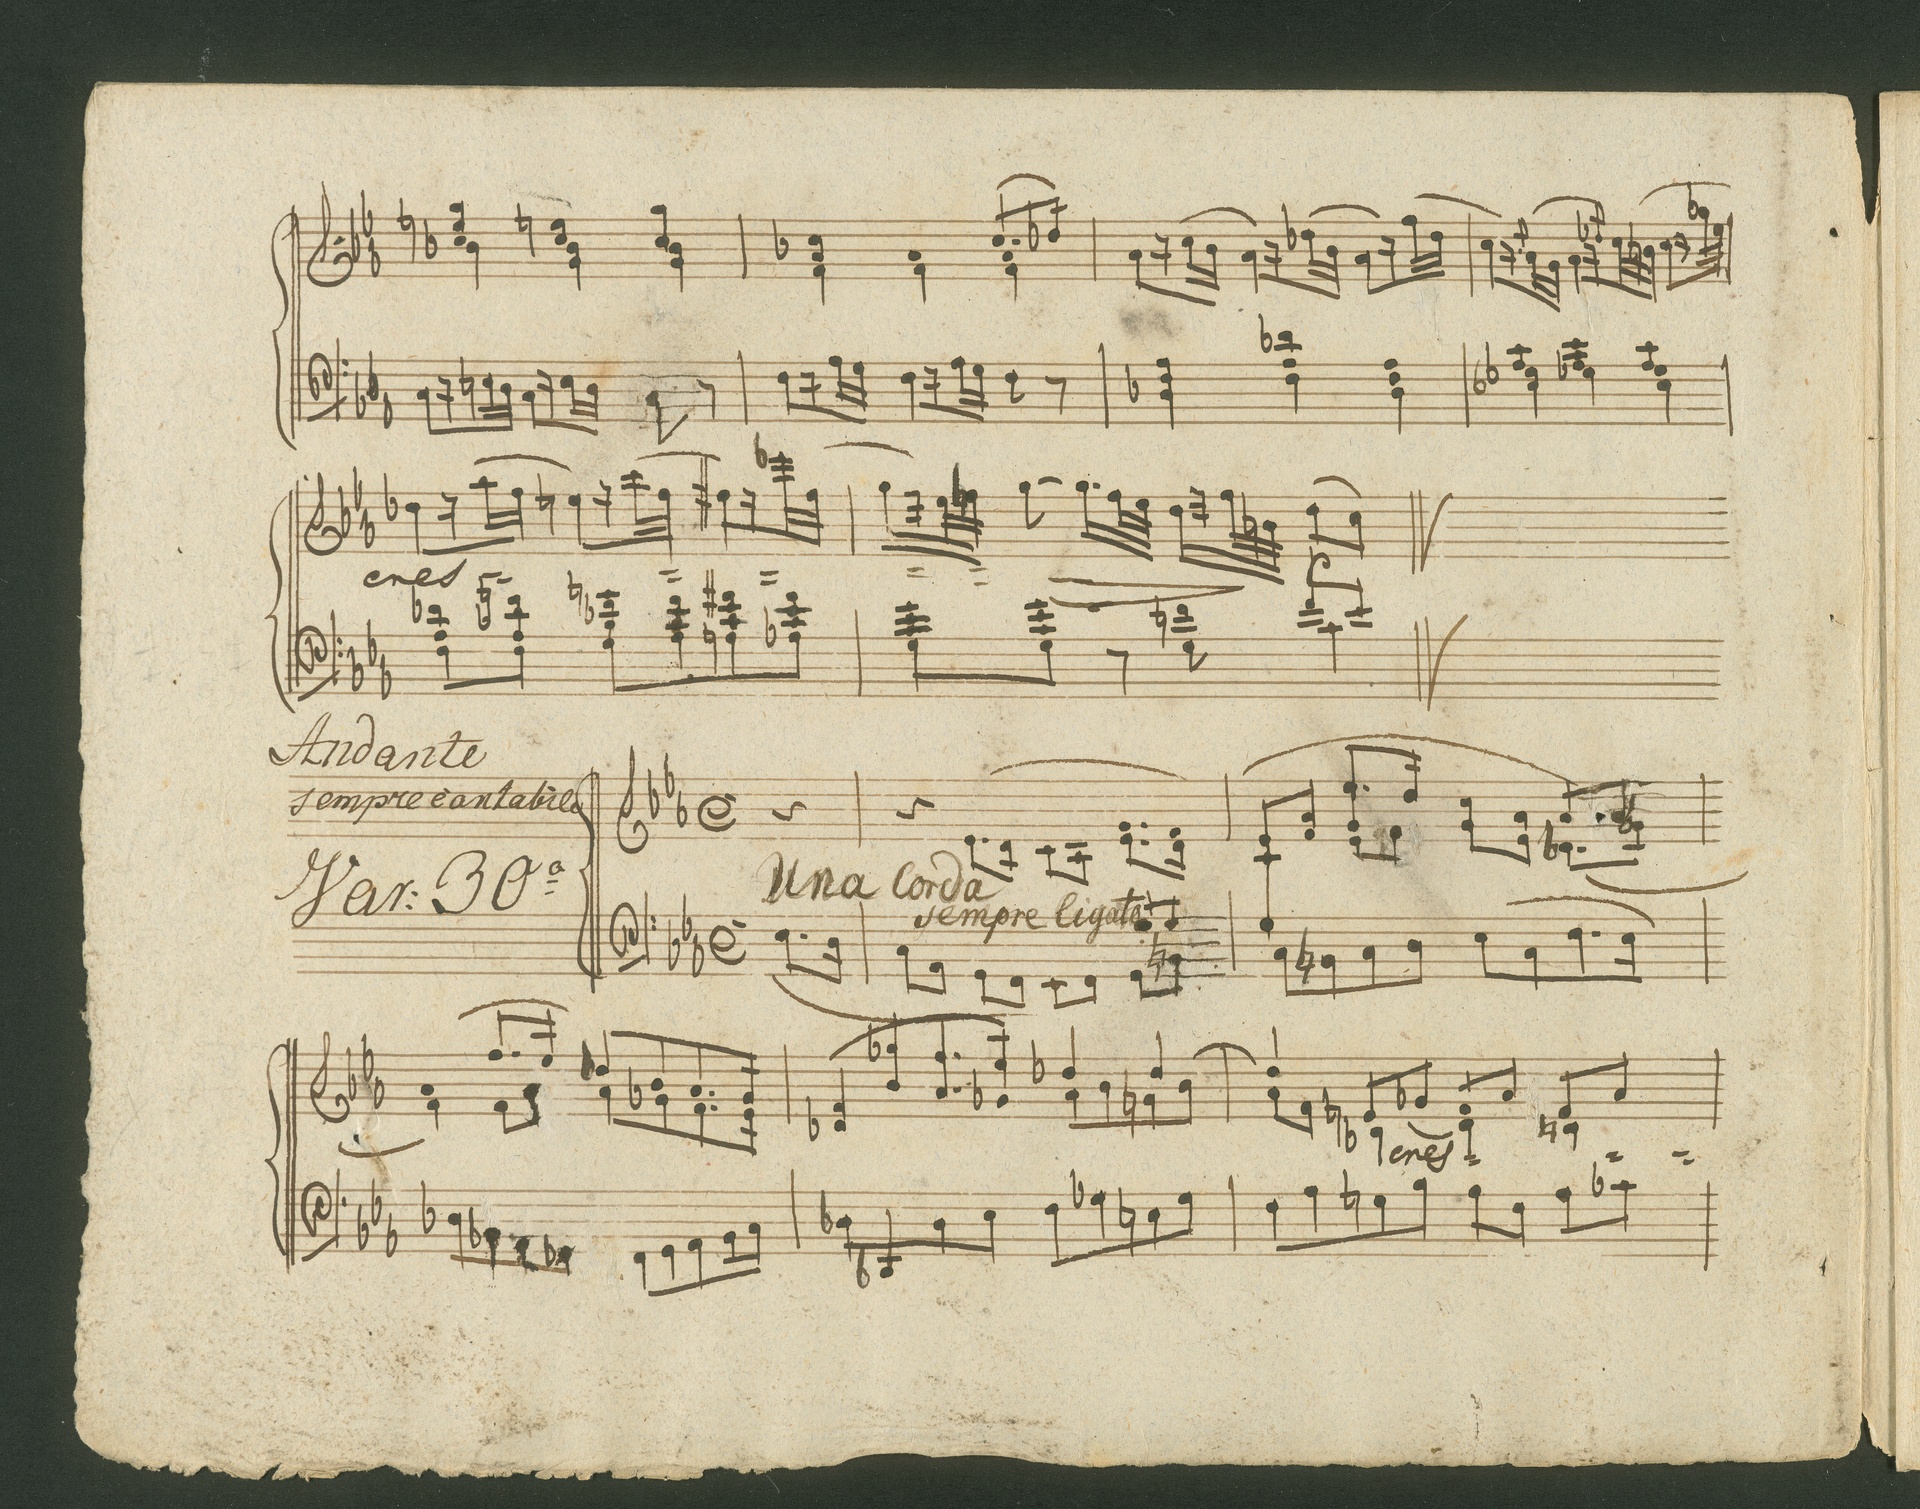 cres
Andante
sempre cantabile
Var: 30ª
Una Corda
sempre ligato
cres